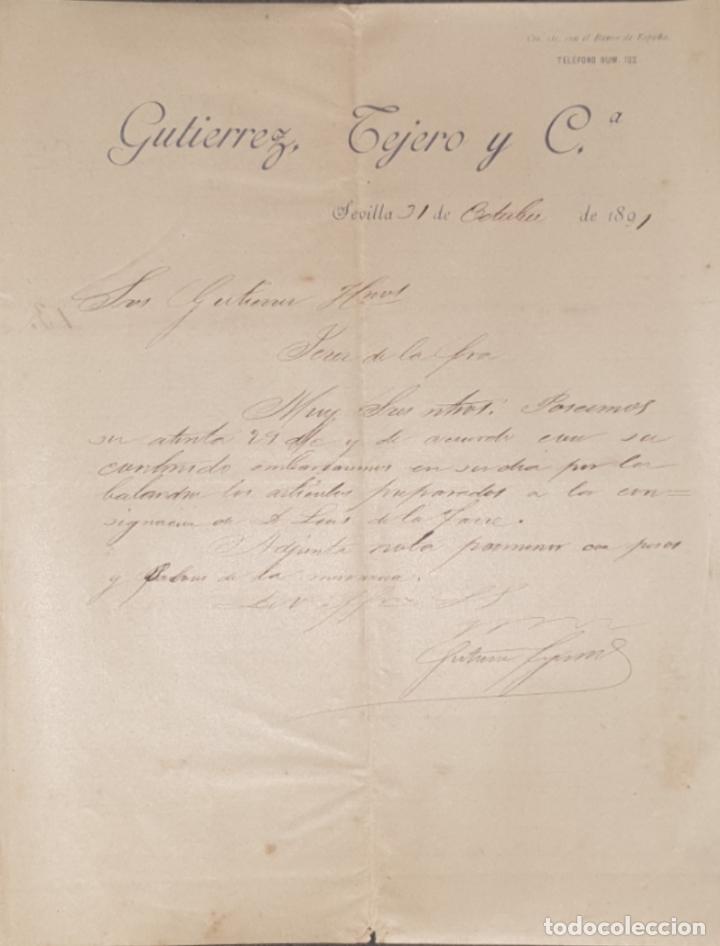 Cta. cte. con el Banco de España.
TELÉFONO NUM. 102
Gutierrez, Tejero y C.ª
Sevilla 31 de Octubre de 1891
Sres Gutierrez Hnos
Jerez de la Fra
Muy Sres ntros: Poseemos
su atenta 29 del c y de acuerdo con su
contenido embarcaremos en su dia por la
balandra los articulos preparados a la con=
signacion de D Luis de la Torre.
Adjunta nota pormenor con pesos
y de la misma.
S S
Gutierrez Tejero
todocoleccion